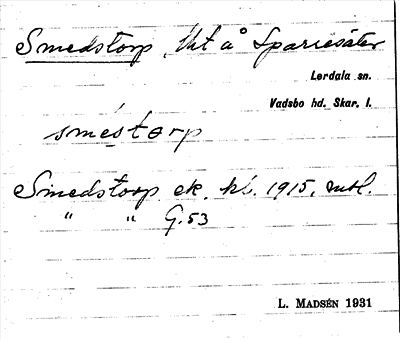 Smedstorp, lht å Sparresäter
Lerdala sn.
Vadsbo hd. Skar. l.
smèstərp
Smedstorp ek. k's. 1915, mbl.
" " G.53
L. MADSÉN 1931